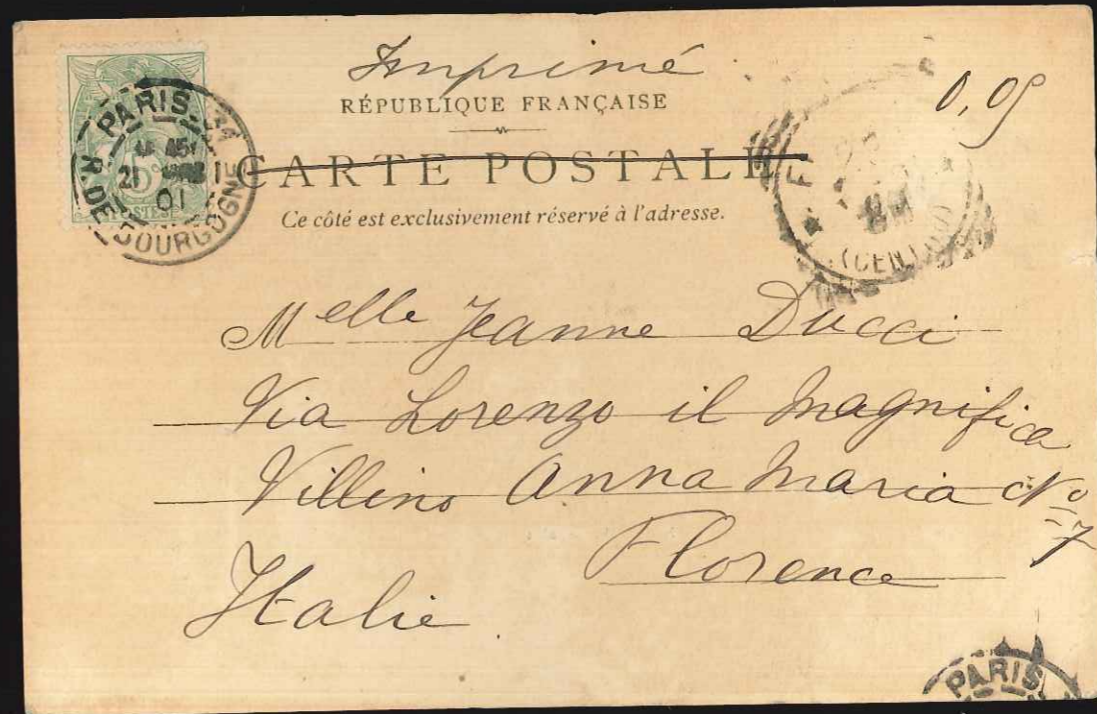 Imprimé
RÉPUBLIQUE FRANÇAISE
0,05
CARTE POSTALE
Ce côté est exclusivement réservé à l'adresse.
PARIS_34
21
01
R. DE BOURGOGNE
5c
F
8M
(CENTRO)
Melle Jeanne Ducci
Via Lorenzo il Magnifico
Villino Anna Maria No 7
Florence
Italie
PARIS